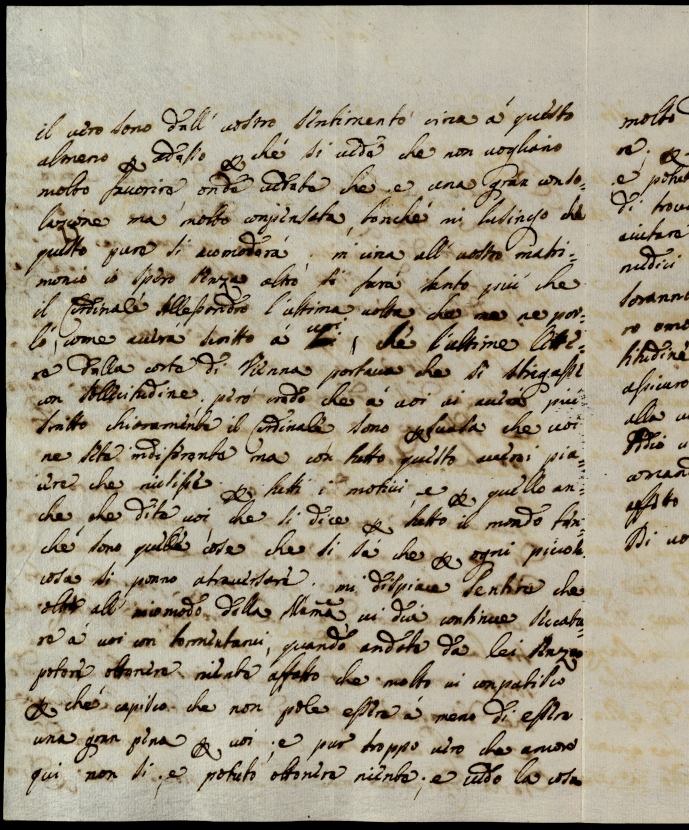 il vero sono dall' vostro sentimento circa à questo
almeno & adesso & ché si vede che non vogliano
molto favorire onde vedete che e una gran conso-
lazione ma molto conpensata, bonché mi lusingo che
questo pure si acomoderà. in circa all' vostro matri-
monio io spero senza altro si farà tanto più che
il Cardinale Allessandro l'ultima volta che me ne par-
lò, come averà scritto à voi, ché l'ultime lette-
re dalla corte di Vienna portava che si sbrigasse
con sollecitudine. però credo che à voi vi averà più
scritto chiaramente il Cardinale sono persuasa che voi
ne sete indiferente ma con tutto questo averei pia-
cere che riuscise & tutti i motivi, e & quello an-
che che dite voi che si dice & tutto il mondo tan-
ché sono quelle cose che si sà che & ogni piccola
cosa si ponno atraversare. mi dispiace sentire che
oltre all' incomodo della Mamà, vi dia continue seccatu-
re à voi con tormentarvi, quando andate da lei senza
potere ottenire niente affatto che molto vi conpatisco
& ché capisco che non pole essere à meno di essere
una gran pena & voi; e pur troppo vero che ancora
qui non si e potuto ottenire niente; e vedo la cosa
molto
re; &
e potut
di trova
aiutare
nudici
soranno
ro
titudine
assicuro
alla
Iddio
cercand
affetto
Di vo